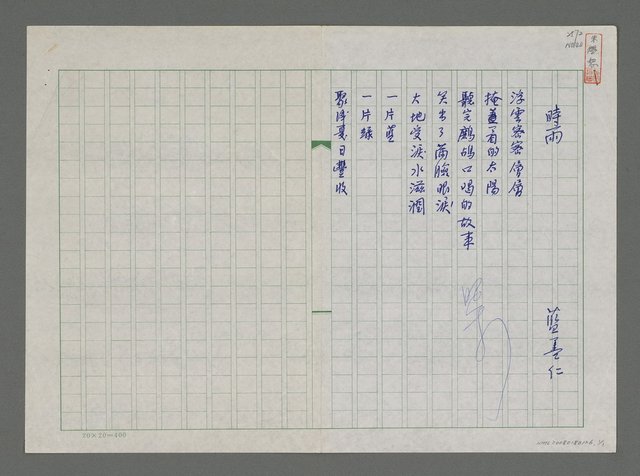 時雨
藍善仁
浮雲密密層層
掩蓋着的太陽
聽完鷓鴣口喝的故事
笑出了滿臉眼淚
大地受淚水滋潤
一片藍
一片綠
夏日豐收
20×20=400